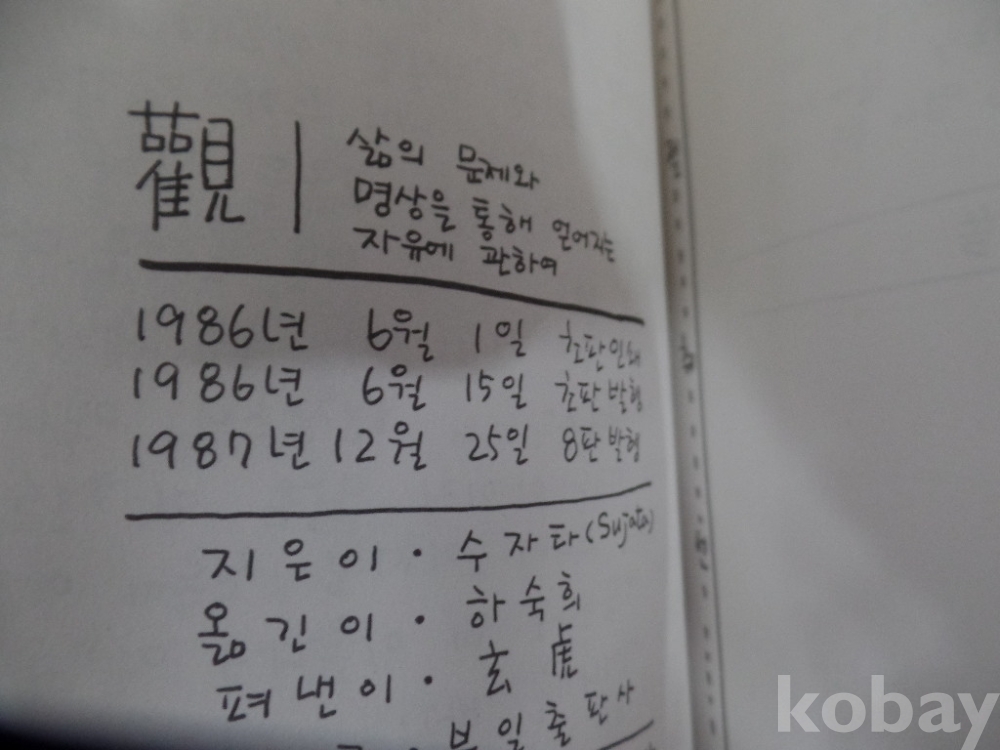 觀 삶의 문제와
명상을 통해 얻어지는
자유에 관하여
1986년 6월 1일 초판인쇄
1986년 6월 15일 초판발행
1987년 12월 25일 8판발행
지은이 · 수자타(Sujata)
옮긴이 · 하숙희
펴낸이 · 玄虎
출판사
kobay